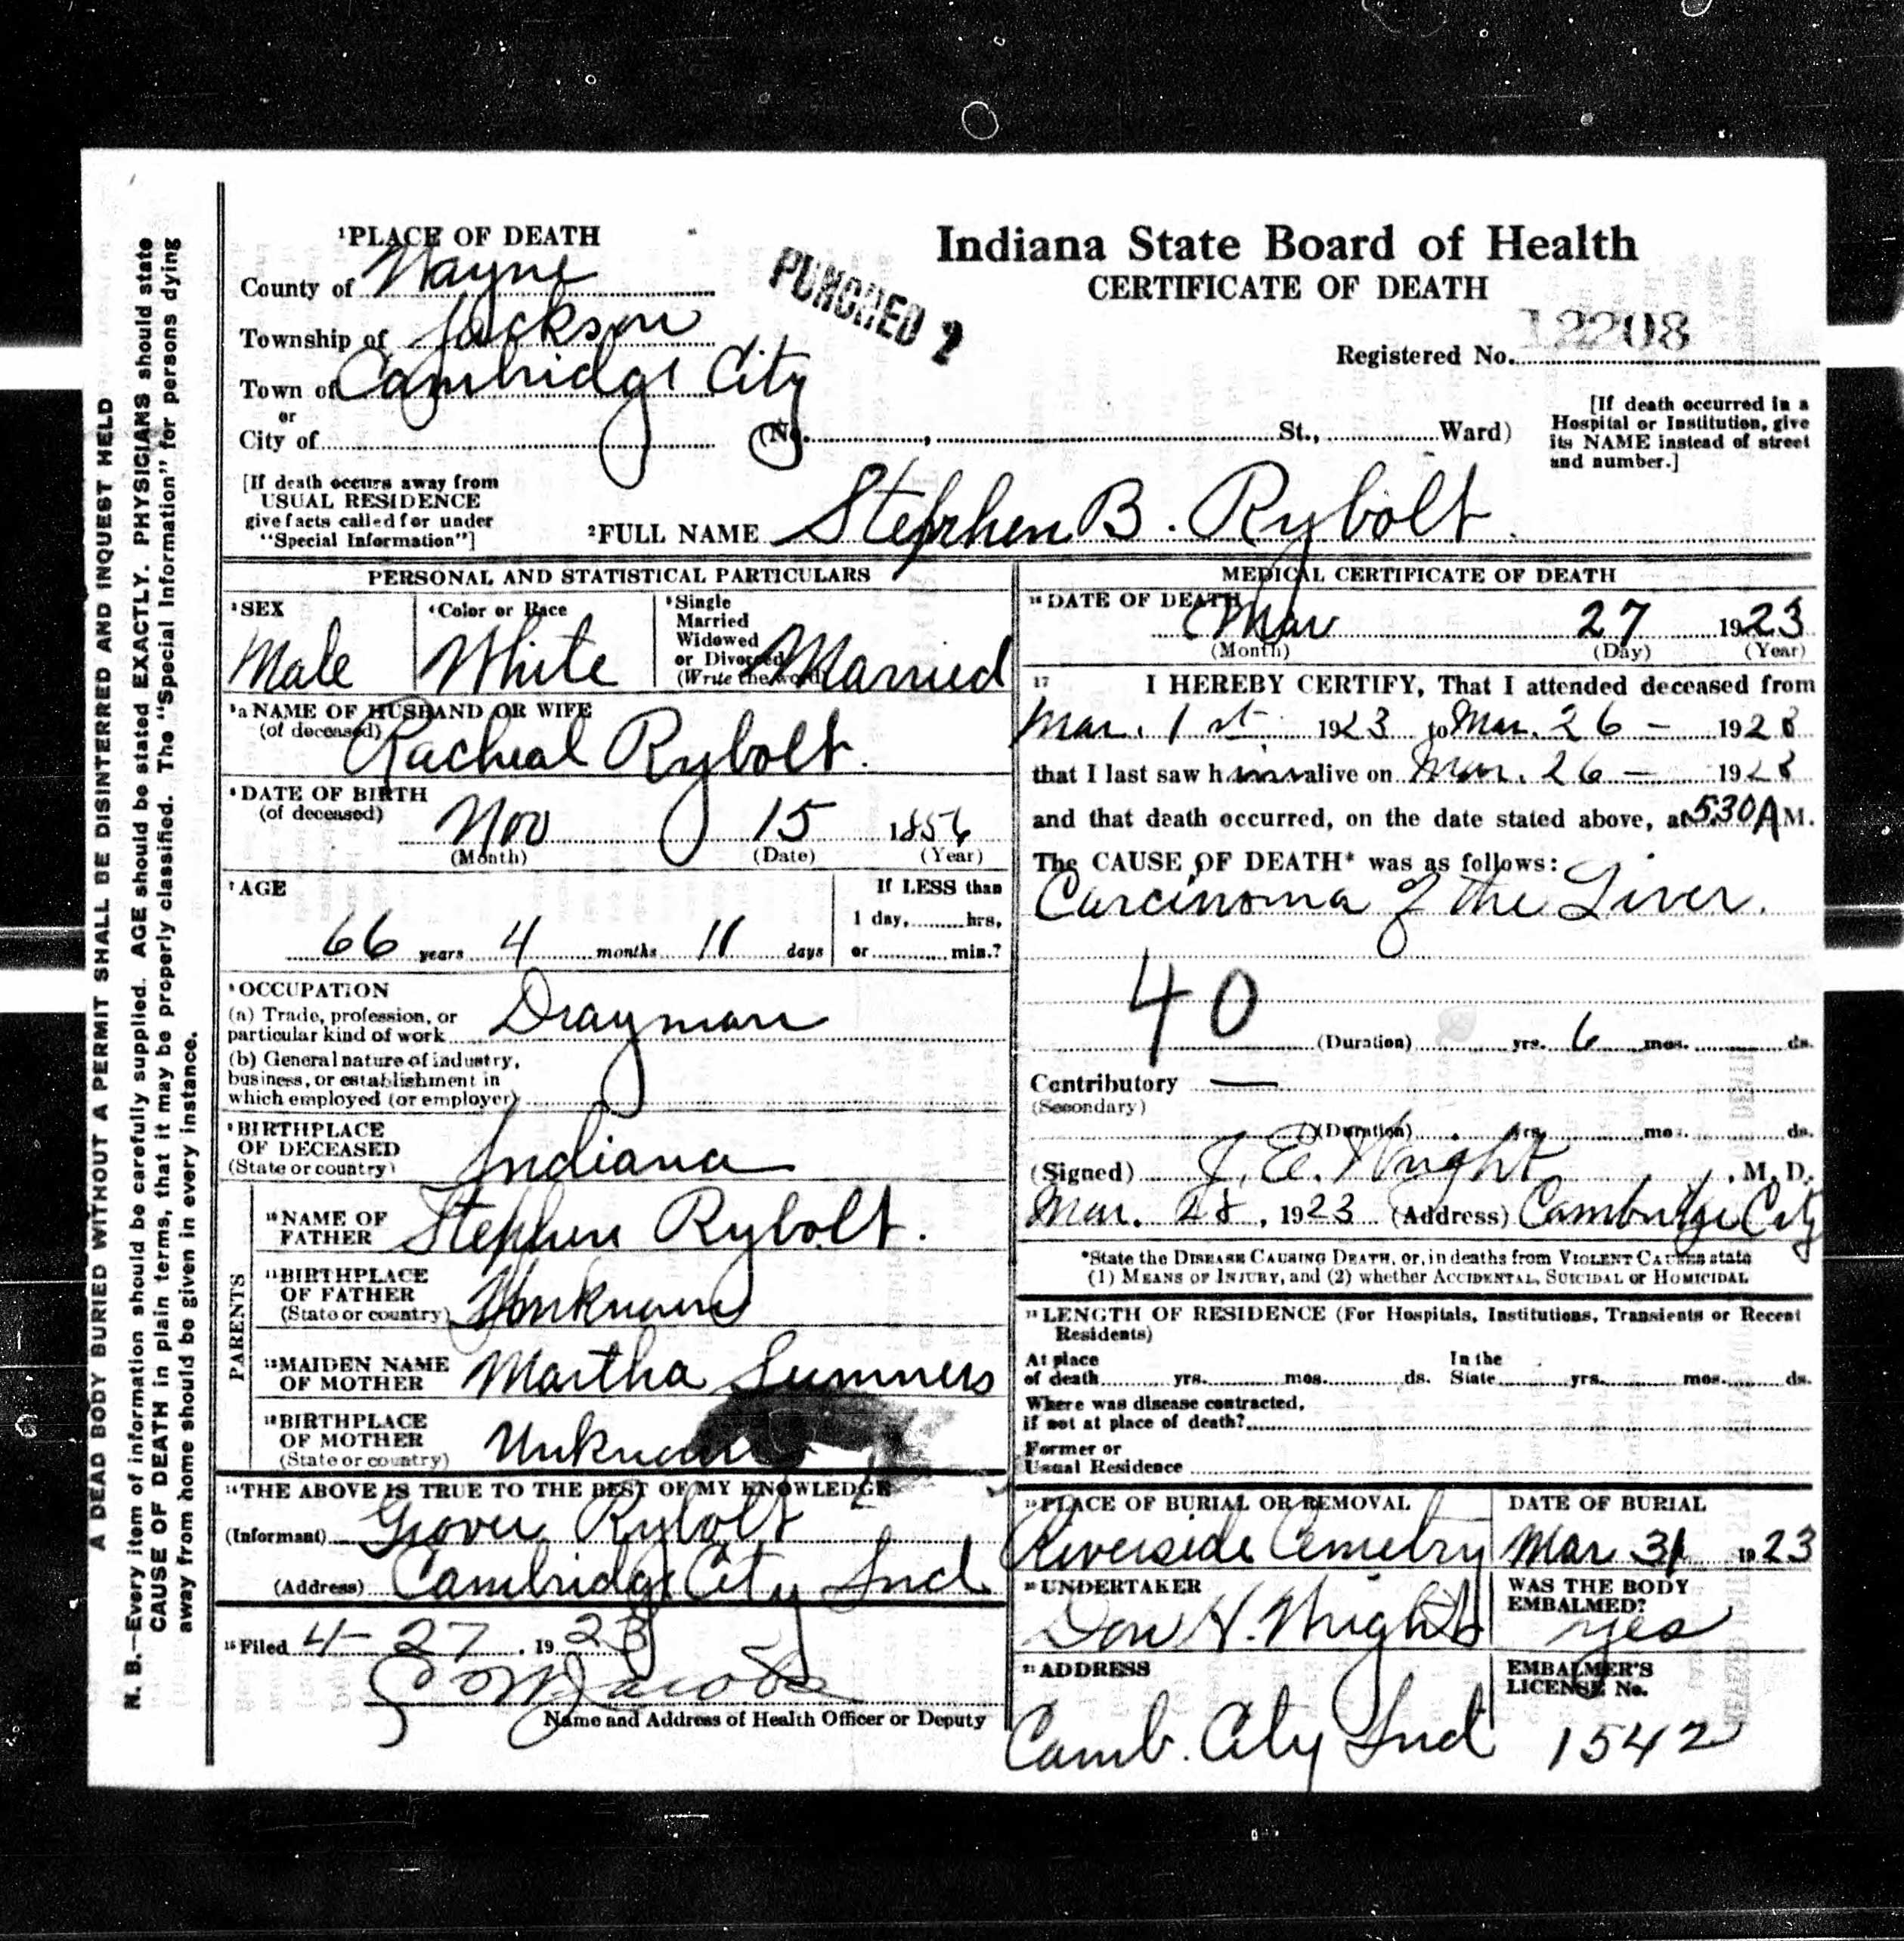 A DEAD BODY BURIED WITHOUT A PERMIT SHALL BE DISINTERRED AND INQUEST HELD
N. B.—Every item of information should be carefully supplied. AGE should be stated EXACTLY. PHYSICIANS should state
CAUSE OF DEATH in plain terms, that it may be properly classified. The "Special Information" for persons dying
away from home should be given in every instance.
¹PLACE OF DEATH
County of Wayne
Township of Jackson
Town of Cambridge City
or
City of
PUNCHED 2
Indiana State Board of Health
CERTIFICATE OF DEATH
Registered No. 12208
(No. , St., Ward)
[If death occurred in a
Hospital or Institution, give
its NAME instead of street
and number.]
[If death occurs away from
USUAL RESIDENCE
give facts called for under
"Special Information"]
²FULL NAME Stephen B. Rybolt
PERSONAL AND STATISTICAL PARTICULARS
³SEX
Male
⁴Color or Race
White
⁵Single
Married
Widowed
or Divorced
(Write the word)
Married
⁵a NAME OF HUSBAND OR WIFE
(of deceased)
Racheal Rybolt.
⁶DATE OF BIRTH
(of deceased)
Nov 15 1856
(Month) (Date) (Year)
⁷AGE
66 years 4 months 11 days
If LESS than
1 day, hrs,
or min.?
⁸OCCUPATION
(a) Trade, profession, or
particular kind of work Drayman
(b) General nature of industry,
business, or establishment in
which employed (or employer)
⁹BIRTHPLACE
OF DECEASED
(State or country) Indiana
PARENTS
¹⁰NAME OF
FATHER Stephen Rybolt.
¹¹BIRTHPLACE
OF FATHER
(State or country) Unknown
¹²MAIDEN NAME
OF MOTHER Martha Summers
¹³BIRTHPLACE
OF MOTHER
(State or country) Unknown
¹⁴THE ABOVE IS TRUE TO THE BEST OF MY KNOWLEDGE
(Informant) Grover Rybolt
(Address) Cambridge City Ind.
¹⁵Filed 4-27, 1923
Jacobs
Name and Address of Health Officer or Deputy
MEDICAL CERTIFICATE OF DEATH
¹⁶DATE OF DEATH
Mar 27 1923
(Month) (Day) (Year)
¹⁷ I HEREBY CERTIFY, That I attended deceased from
Mar. 1st 1923 to Mar. 26 - 1923
that I last saw him alive on Mar. 26 - 1923
and that death occurred, on the date stated above, at 5.30 A M.
The CAUSE OF DEATH* was as follows:
Carcinoma of the Liver.
40
(Duration) yrs. 6 mos. ds.
Contributory —
(Secondary)
(Duration) yrs. mos. ds.
(Signed) J. E. Wright, M. D.
Mar. 28, 1923 (Address) Cambridge City
*State the DISEASE CAUSING DEATH, or, in deaths from VIOLENT CAUSES state
(1) MEANS OF INJURY, and (2) whether ACCIDENTAL, SUICIDAL or HOMICIDAL
¹⁸LENGTH OF RESIDENCE (For Hospitals, Institutions, Transients or Recent
Residents)
At place
of death yrs. mos. ds.
In the
State yrs. mos. ds.
Where was disease contracted,
if not at place of death?
Former or
Usual Residence
¹⁹PLACE OF BURIAL OR REMOVAL
Riverside Cemetry
DATE OF BURIAL
Mar 31 1923
²⁰UNDERTAKER
Don H. Wright
WAS THE BODY
EMBALMED?
yes
²¹ADDRESS
Camb. City Ind
EMBALMER'S
LICENSE No.
1542